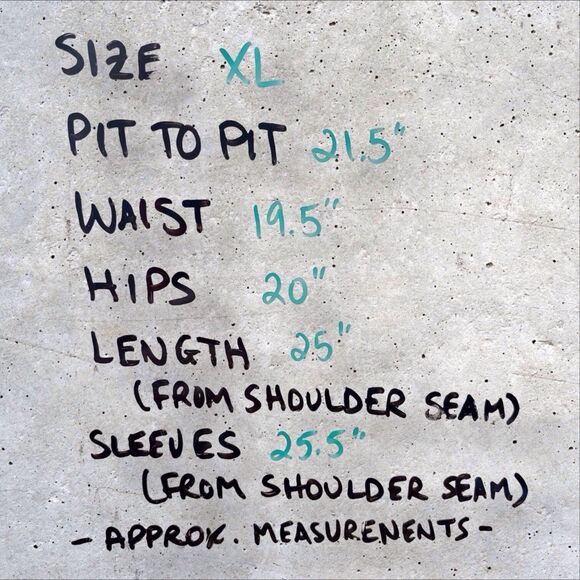 SIZE XL
PIT TO PIT 21.5"
WAIST 19.5"
HIPS 20"
LENGTH 25"
(FROM SHOULDER SEAM)
SLEEVES 25.5"
(FROM SHOULDER SEAM)
- APPROX. MEASURENENTS -